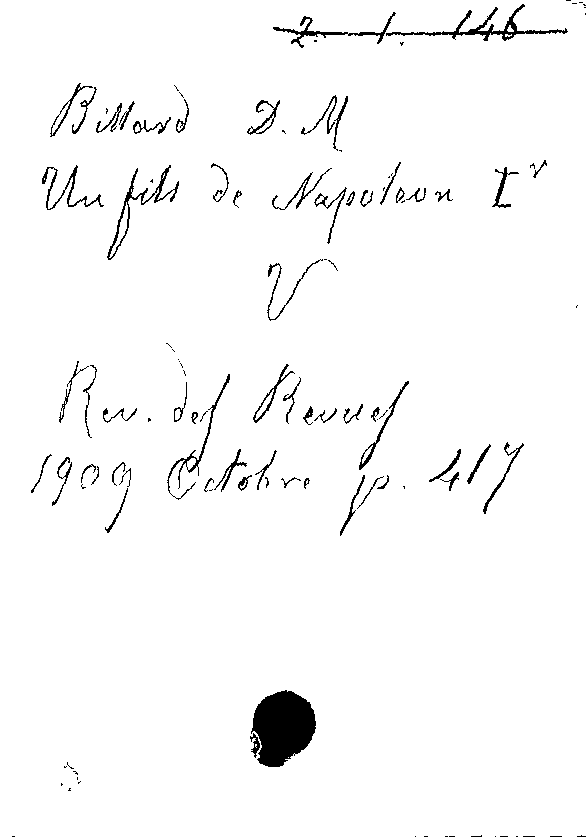 2. 1. 146
Billard D. M
Un fils de Napoleon Iʳ
V
Rev. des Revues
1909 Octobre p. 417